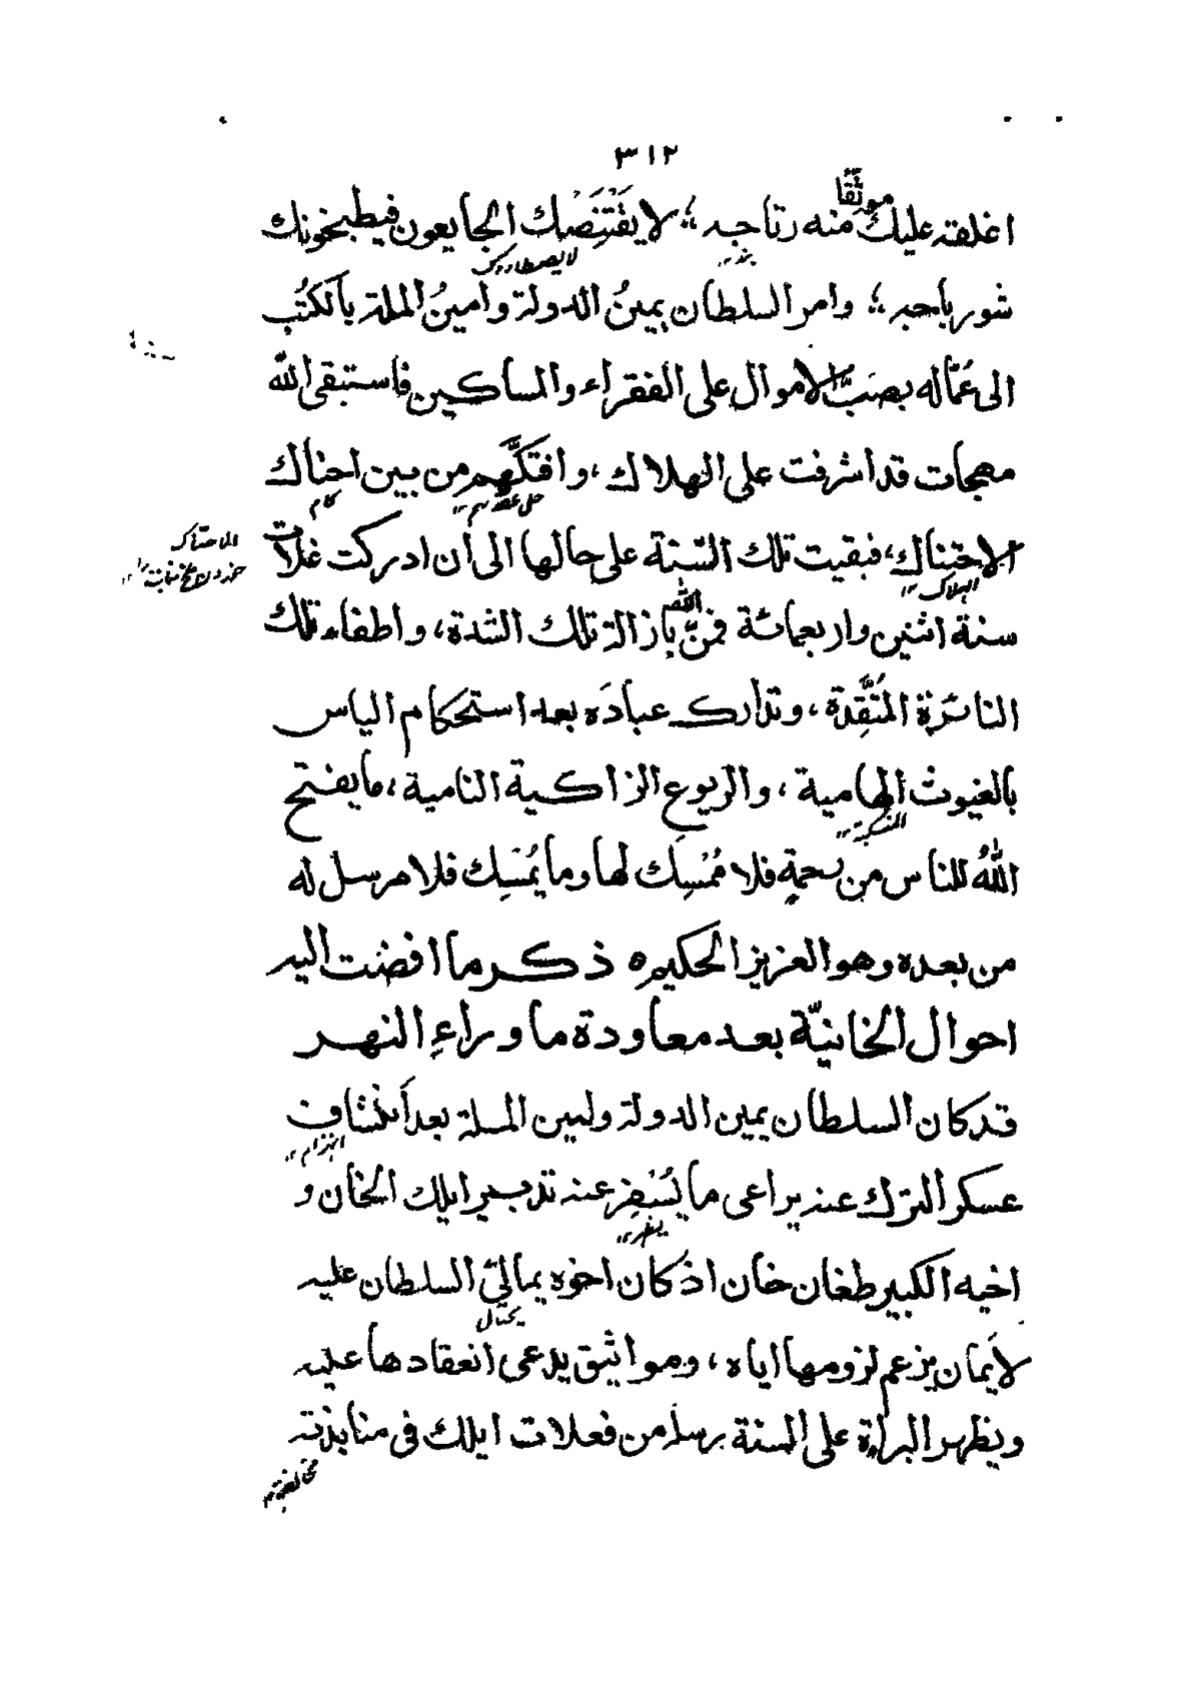 ٣١٢
اغلقته عليك موثقا منه رتاجه ؛؛ لا يقتنصك الجايعون فيطبخونك
لا يصطادونك
شورباجه ؛؛ وامر السلطان يمينُ الدولة وامينُ الملة بالكتُب
الى عُمّاله بصَبِّ الاموال على الفقراء والمساكين فاستبقى اللّه
مهجات قد اشرفت على الهلاك ، وافتكَّهم من بين احناك
كام
الاحتناك ، فبقيت تلك السّنة على حالها الى أن ادركت غلات
الهلاك
الاحتناك
سنة اثنين واربعمائة فمنَّ اللّه بازالة تلك الشدة ، واطفاء تلك
النائرة المُتَّقِدة ، وتدارك عبادَه بعد استحكام الياس
بالغيوث الهامية ، والريوع الزاكية النامية ، ما يفتح
المنسكبة
اللّهُ للناس من رحمةٍ فلا مُمْسِك لها وما يُمْسِك فلا مرسل له
من بعده وهو العزيز الحكيم ه ذكر ما افضت اليه
احوال الخانيّة بعد معاودة ما وراءِ النهر
قد كان السلطان يمين الدولة وامين الملة بعد اَنكشاف
انهزام
عسكر الترك عنه يراعى ما يُسْفِر عنه تدبير ايلك الخان و
يظهر
اخيه الكبير طغان خان اذ كان اخوه يمالئ السلطان عليه
لاَيمان يزعم لزومها اياه ، ومواثيق يدعى انعقادها عليه
ويظهر البراءة على السنة رسله من فعلات ايلك فى منابذته
مخالفته